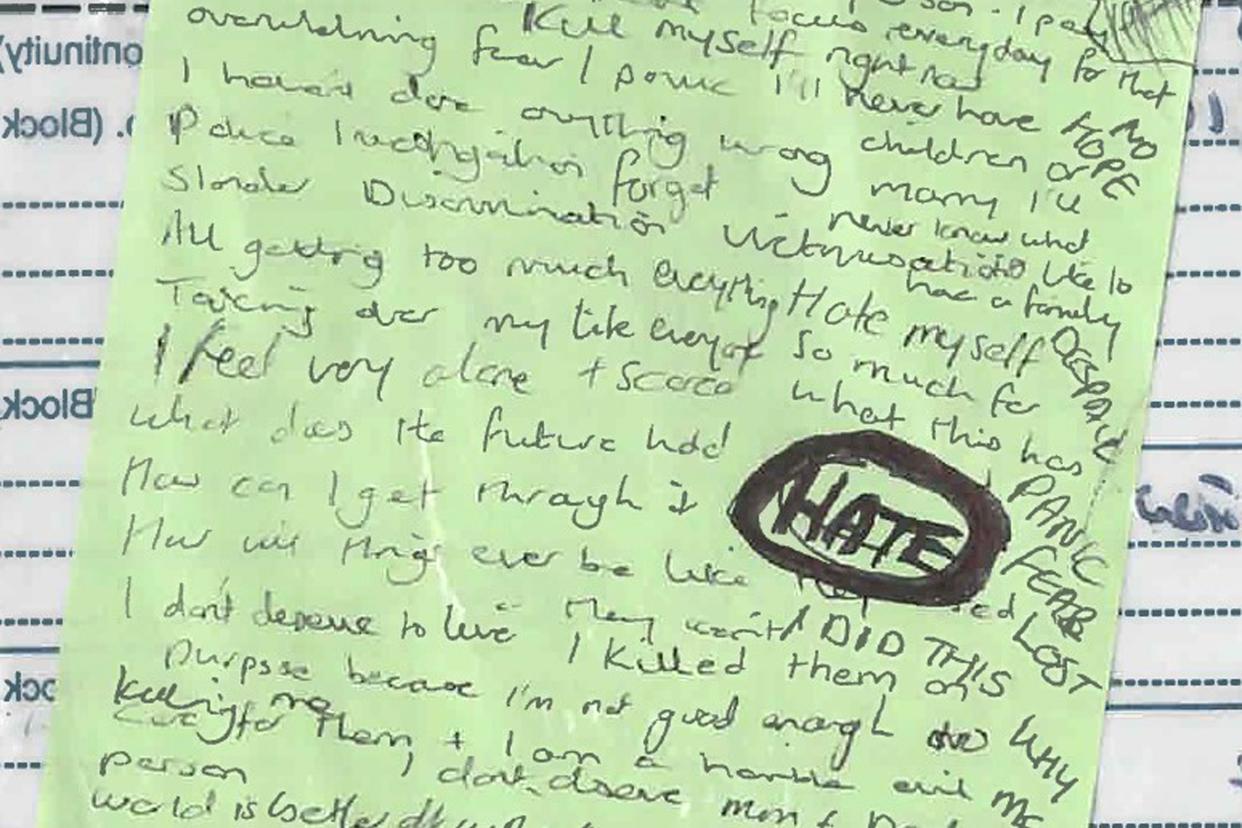 overwhelming fear / panic I'll never have
Kill myself right now
focus everyday for that
I haven't done anything wrong children or
NO
HOPE
Police Investigation forget marry I'll
Slander Discrimination Victimisation
never know what
like to
have a family
All getting too much everything Hate myself
DESPAIR
Taking over my life everyday so much for
I feel very alone + scared what this has
What does the future hold
PANIC
How can I get through it
HATE
FEAR
How will things ever be like
LOST
I don't deserve to live They went I DID THIS
I killed them on
purpose because I'm not good enough
WHY
ME
killing me
care for them + I am a horrible evil
person I don't deserve mum +
world is better off
ontinuity)
(Block
Block
ock